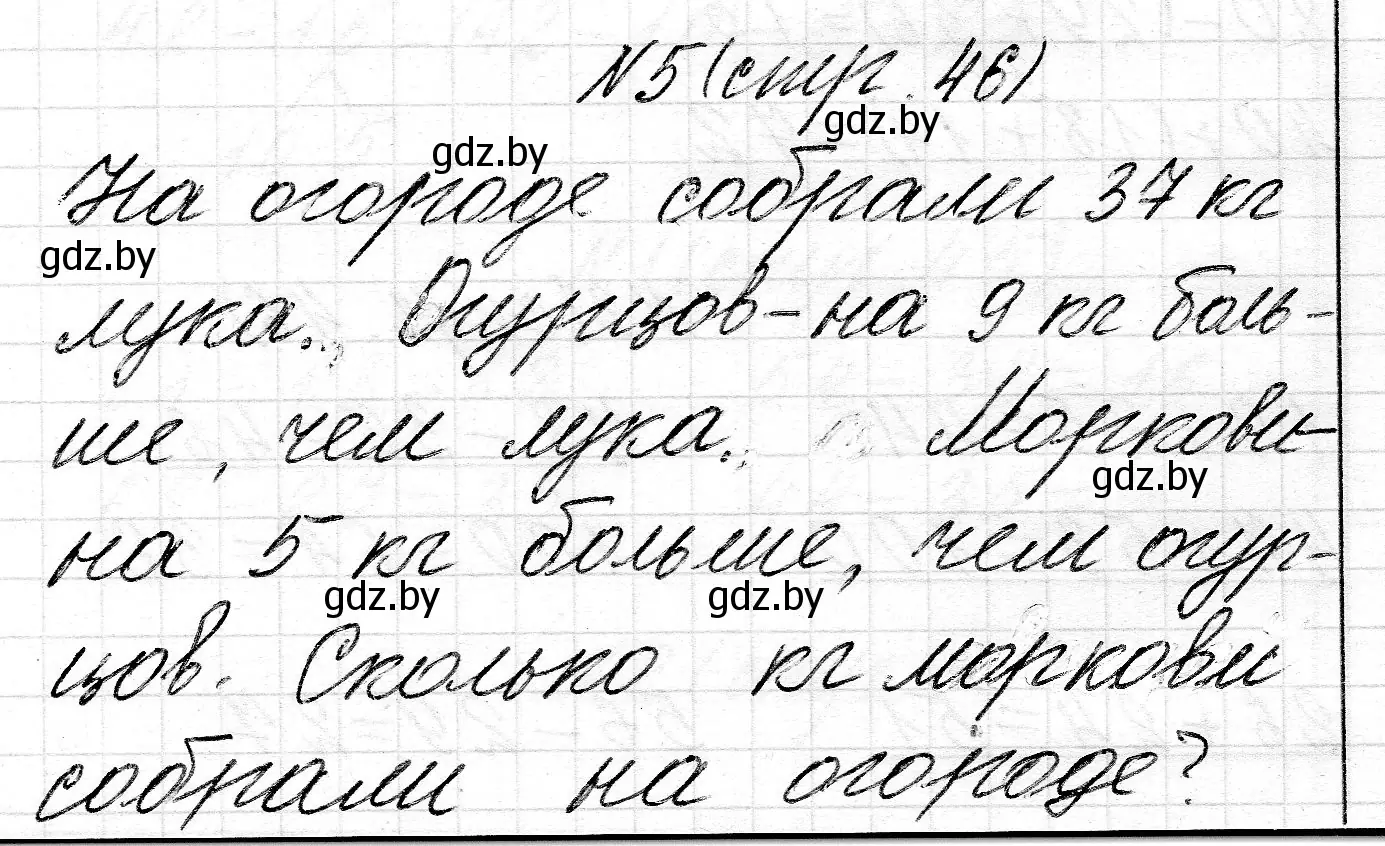 N5 (стр. 46)
gdz.by
gdz.by
На огороде собрали 37 кг
gdz.by
лука. Огурцов - на 9 кг боль-
ше, чем лука. Моркови -
gdz.by
на 5 кг больше, чем огур-
gdz.by gdz.by
цов. Сколько кг моркови
собрали на огороде?